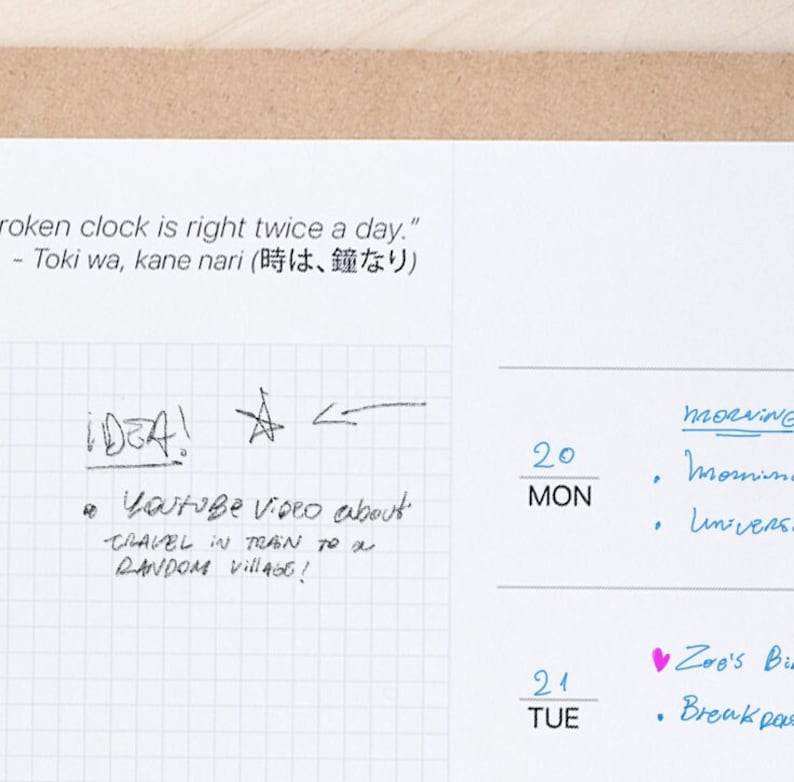 roken clock is right twice a day.”
- Toki wa, kane nari (時は、鐘なり)
iDEA!
• YouTuBe ViDEO about
TRAVEL iN TRAIN TO a
RANDOM VillAGE!
morning
20
MON
• Mornin
• Univers
21
TUE
Zoe's Bi
• Break